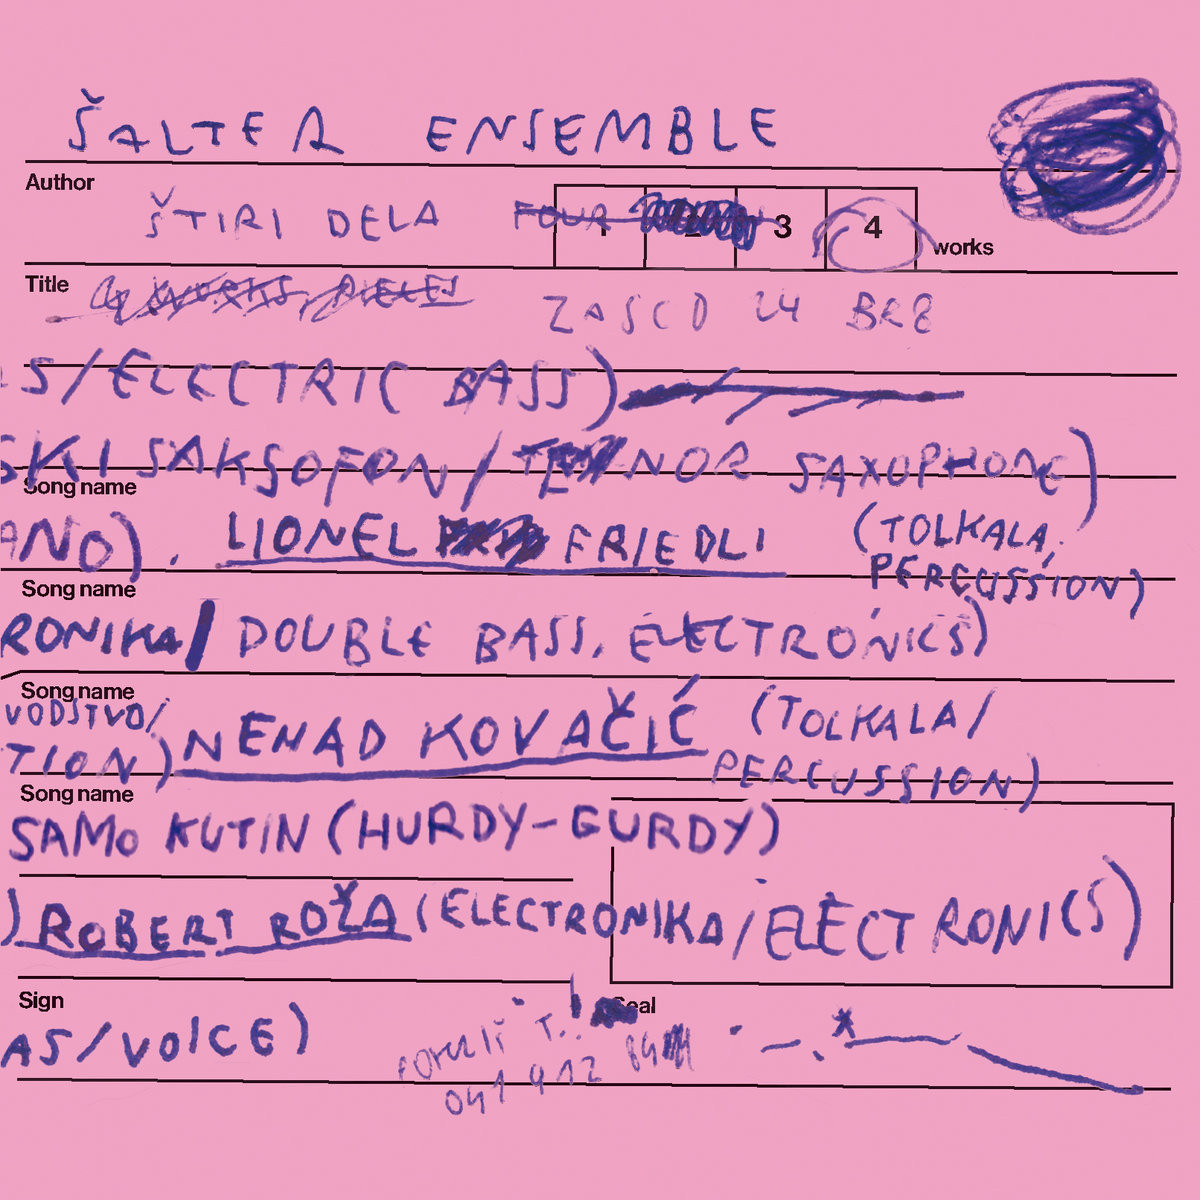 ŠALTER ENSEMBLE
Author
ŠTIRI DELA FOUR 3 4 works
Title
4 WORKS, PIECES
ZASCD 24 BRE
S/ELECTRIC BASS)
SKI SAKSOFON/TENOR SAXOPHONE)
Song name
ANO). LIONEL FRIEDLI (TOLKALA,
PERCUSSION)
Song name
RONIKA/DOUBLE BASS, ELECTRONICS)
Song name
VODSTVO/
TION) NENAD KOVAČIĆ (TOLKALA/
PERCUSSION)
Song name
SAMO KUTIN (HURDY-GURDY)
) ROBERT ROŽA (ELECTRONIKA/ELECTRONICS)
Sign
Seal
AS/VOICE)
T.
041 912 84